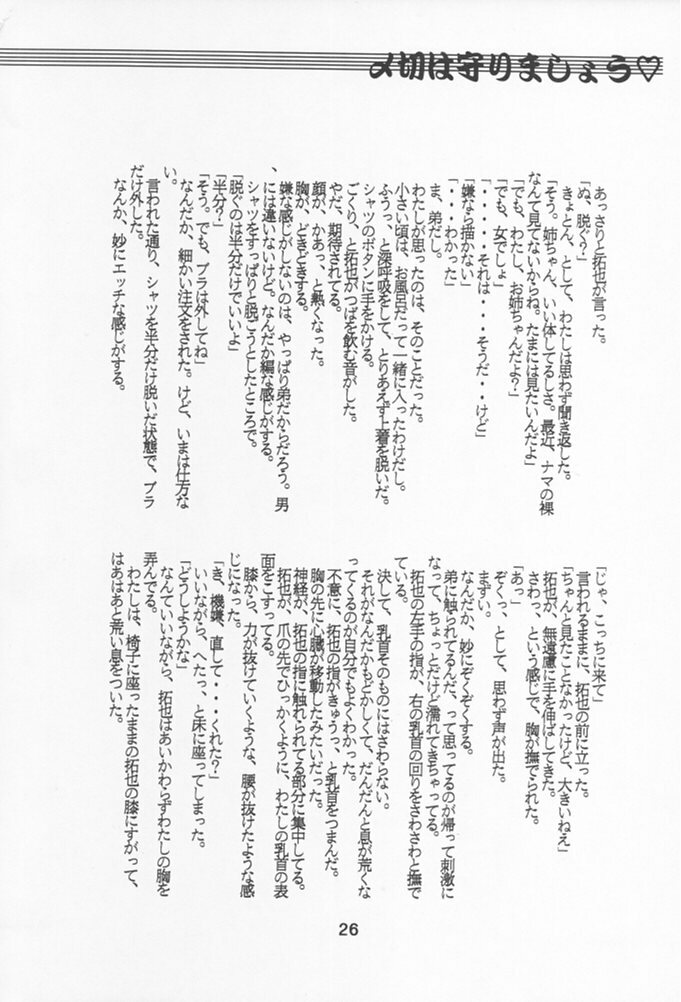 〆切は守りましょう♡
あっさりと拓也が言った。
「ぬ、脱ぐ？」
きょとん、として、わたしは思わず聞き返した。
「そう。姉ちゃん、いい体してるしさ。最近、ナマの裸
なんて見てないからね。たまには見たいんだよ」
「でも、わたし、お姉ちゃんだよ？」
「でも、女でしょ」
「・・・・・それは・・・そうだ・・けど」
「嫌なら描かない」
「・・・わかった」
ま、弟だし。
わたしが思ったのは、そのことだった。
小さい頃は、お風呂だって一緒に入ったわけだし。
ふうっ、と深呼吸をして、とりあえず上着を脱いだ。
シャツのボタンに手をかける。
ごくり、と拓也がつばを飲む音がした。
やだ、期待されてる。
顔が、かあっ、と熱くなった。
胸が、どきどきする。
嫌な感じがしないのは、やっぱり弟だからだろう。男
、には違いないけど。なんだか編な感じがする。
シャツをすっぱりと脱ごうとしたところで。
「脱ぐのは半分だけでいいよ」
「半分？」
「そう。でも、ブラは外してね」
なんだか、細かい注文をされた。けど、いまは仕方な
い。
言われた通り、シャツを半分だけ脱いだ状態で、ブラ
だけ外した。
なんか、妙にエッチな感じがする。
「じゃ、こっちに来て」
言われるままに、拓也の前に立った。
「ちゃんと見たことなかったけど、大きいねえ」
拓也が、無遠慮に手を伸ばしてきた。
さわっ、という感じで、胸が撫でられた。
「あっ」
ぞくっ、として、思わず声が出た。
まずい。
なんだか、妙にぞくぞくする。
弟に触られてるんだ、って思ってるのが帰って刺激に
なって、ちょっとだけど濡れてきちゃってる。
拓也の左手の指が、右の乳首の回りをさわさわと撫で
ている。
決して、乳首そのものにはさわらない。
それがなんだかもどかしくて、だんだんと息が荒くな
ってくるのが自分でもよくわかった。
不意に、拓也の指がきゅうっ、と乳首をつまんだ。
胸の先に心臓が移動したみたいだった。
神経が、拓也の指に触れられてる部分に集中してる。
拓也が、爪の先でひっかくように、わたしの乳首の表
面をこすってる。
膝から、力が抜けていくような、腰が抜けたような感
じになった。
「き、機嫌、直して・・・くれた？」
いいながら、へたっ、と床に座ってしまった。
「どうしようかな」
なんていいながら、拓也はあいかわらずわたしの胸を
弄んでる。
わたしは、椅子に座ったままの拓也の膝にすがって、
はあはあと荒い息をついた。
26